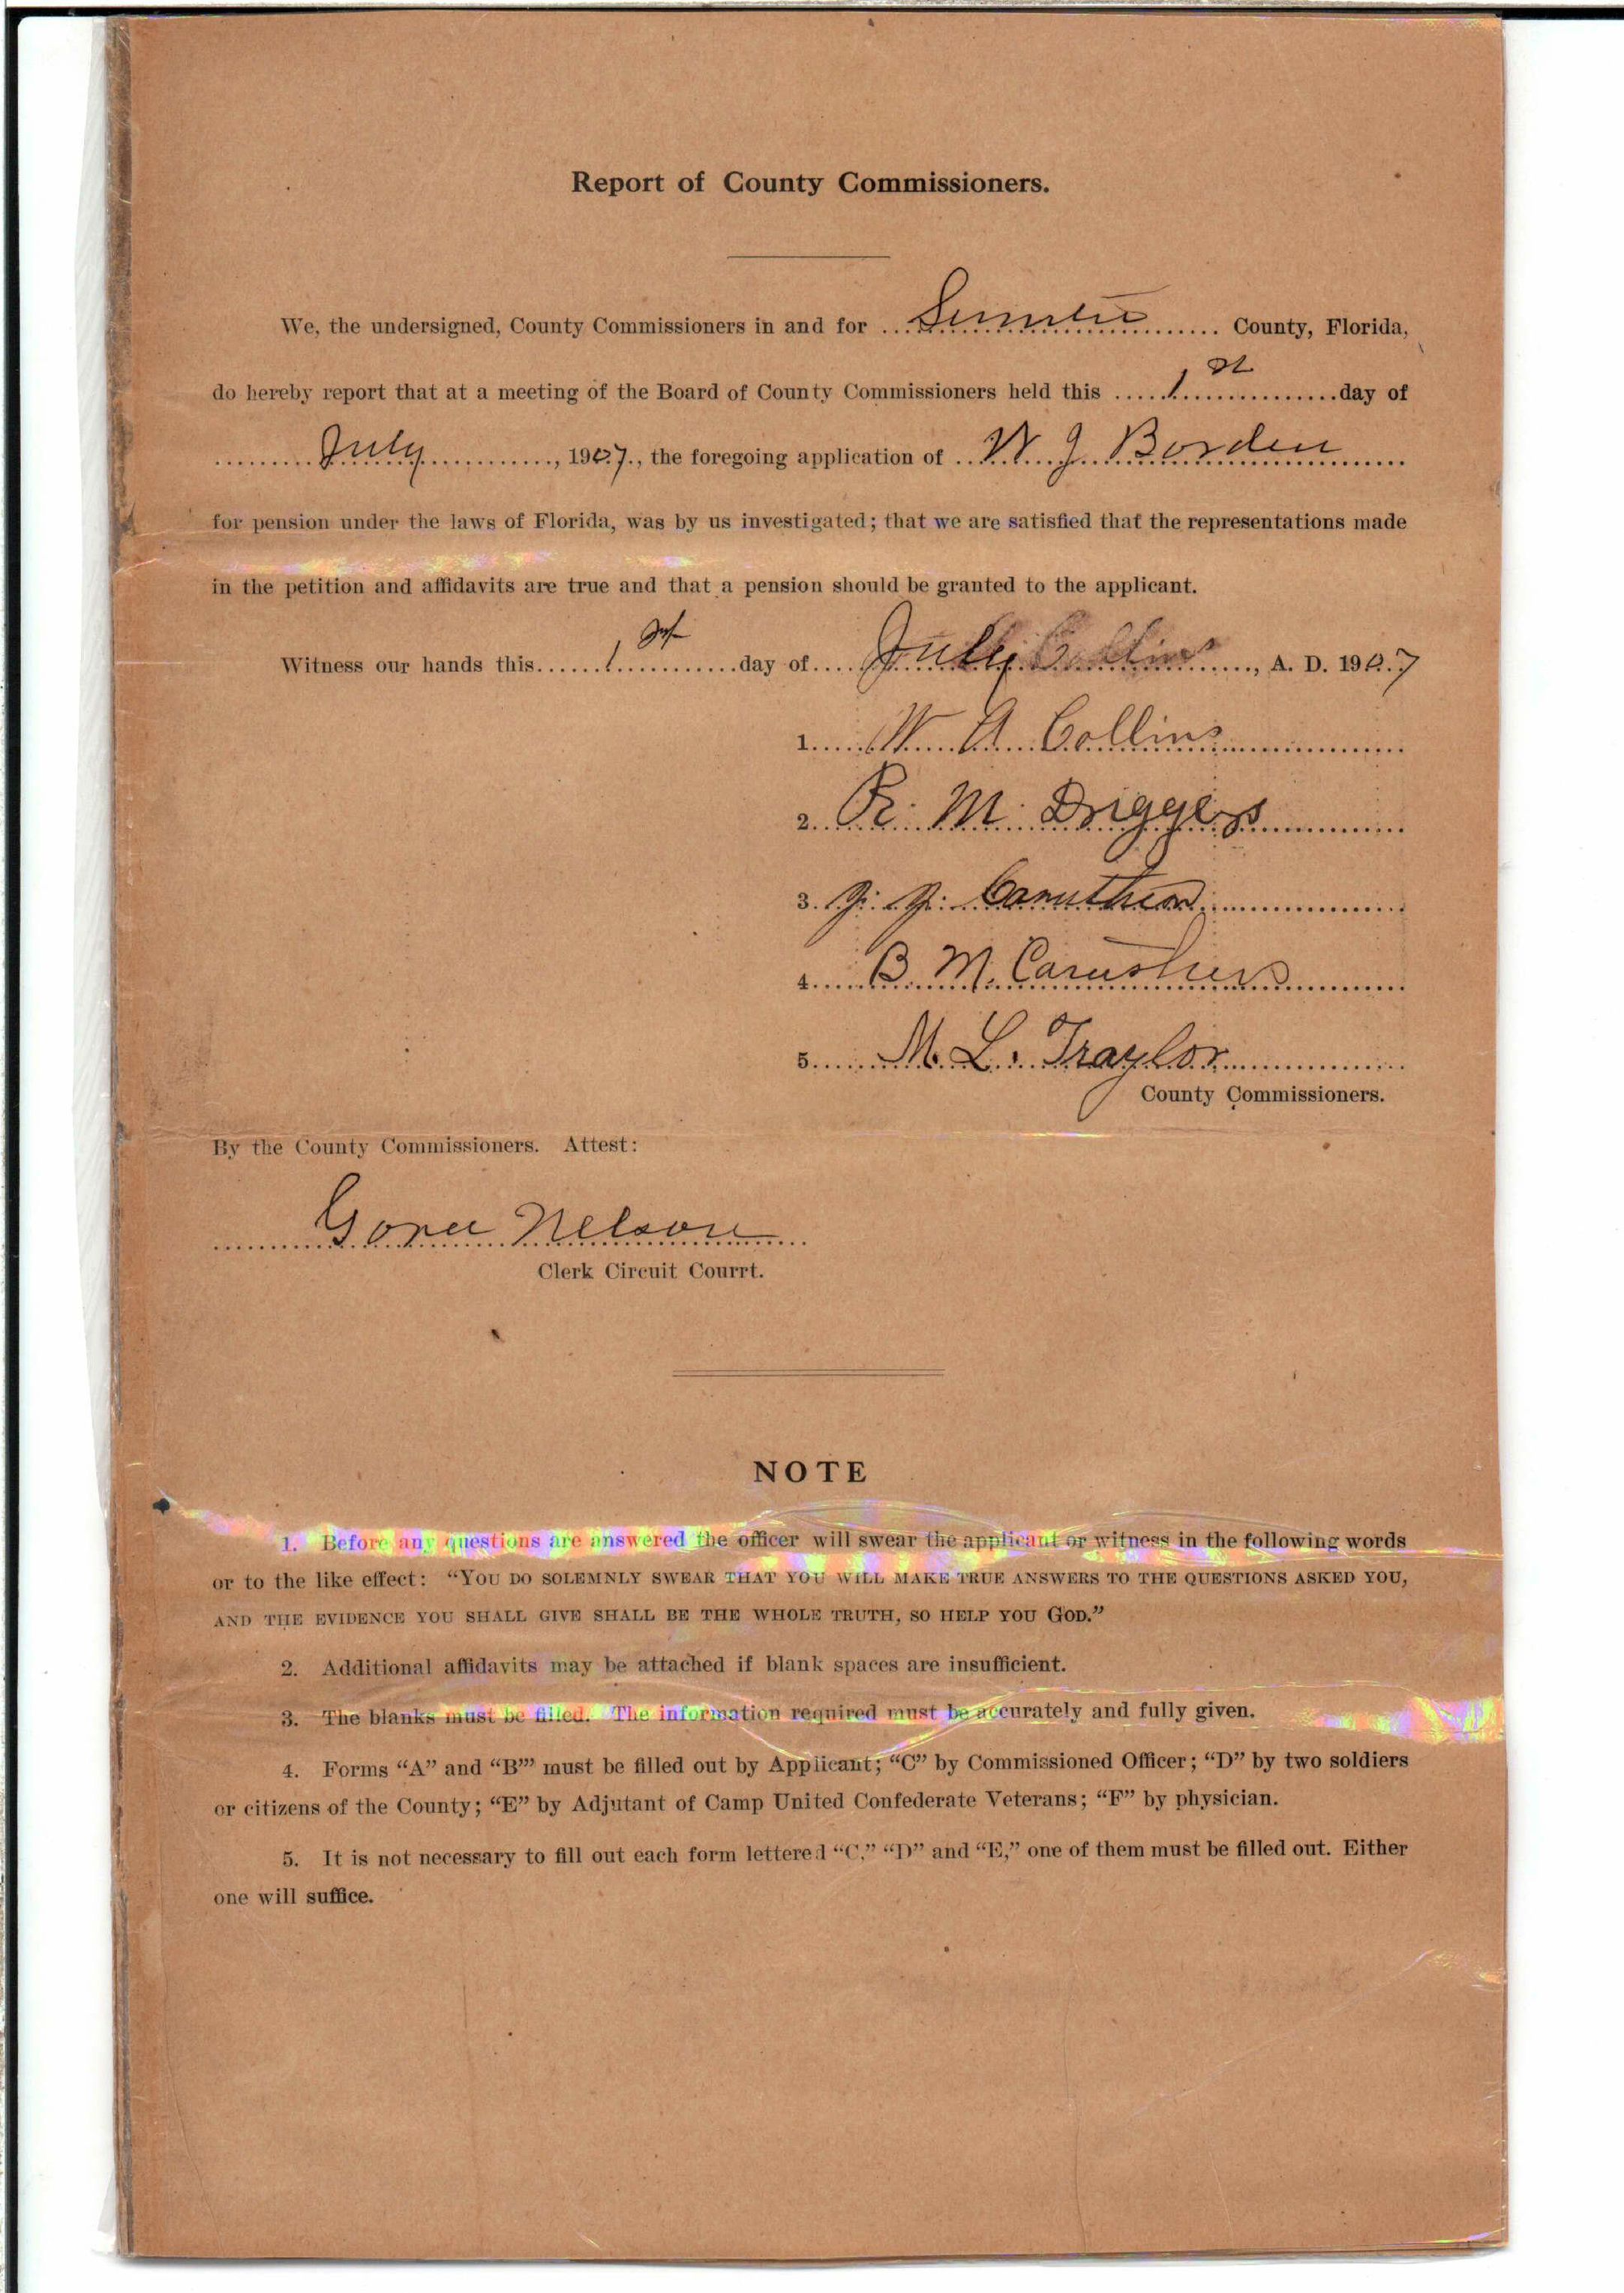 Report of County Commissioners.
We, the undersigned, County Commissioners in and for Sumter County, Florida,
do hereby report that at a meeting of the Board of County Commissioners held this 1st day of
July, 1907, the foregoing application of W. J. Borden
for pension under the laws of Florida, was by us investigated; that we are satisfied that the representations made
in the petition and affidavits are true and that a pension should be granted to the applicant.
Witness our hands this 1st day of July, A. D. 1907
1. W. A. Collins
2. R. M. Driggers
3. Caruthers
4. B. M. Caruthers
5. M. L. Traylor
County Commissioners.
By the County Commissioners. Attest:
Nelson
Clerk Circuit Courrt.
NOTE
1. Before any questions are answered the officer will swear the applicant or witness in the following words
or to the like effect: “YOU DO SOLEMNLY SWEAR THAT YOU WILL MAKE TRUE ANSWERS TO THE QUESTIONS ASKED YOU,
AND THE EVIDENCE YOU SHALL GIVE SHALL BE THE WHOLE TRUTH, SO HELP YOU GOD.”
2. Additional affidavits may be attached if blank spaces are insufficient.
3. The blanks must be filled. The information required must be accurately and fully given.
4. Forms “A” and “B”’ must be filled out by Applicant; “C” by Commissioned Officer; “D” by two soldiers
or citizens of the County; “E” by Adjutant of Camp United Confederate Veterans; “F” by physician.
5. It is not necessary to fill out each form lettered “C,” “D” and “E,” one of them must be filled out. Either
one will suffice.